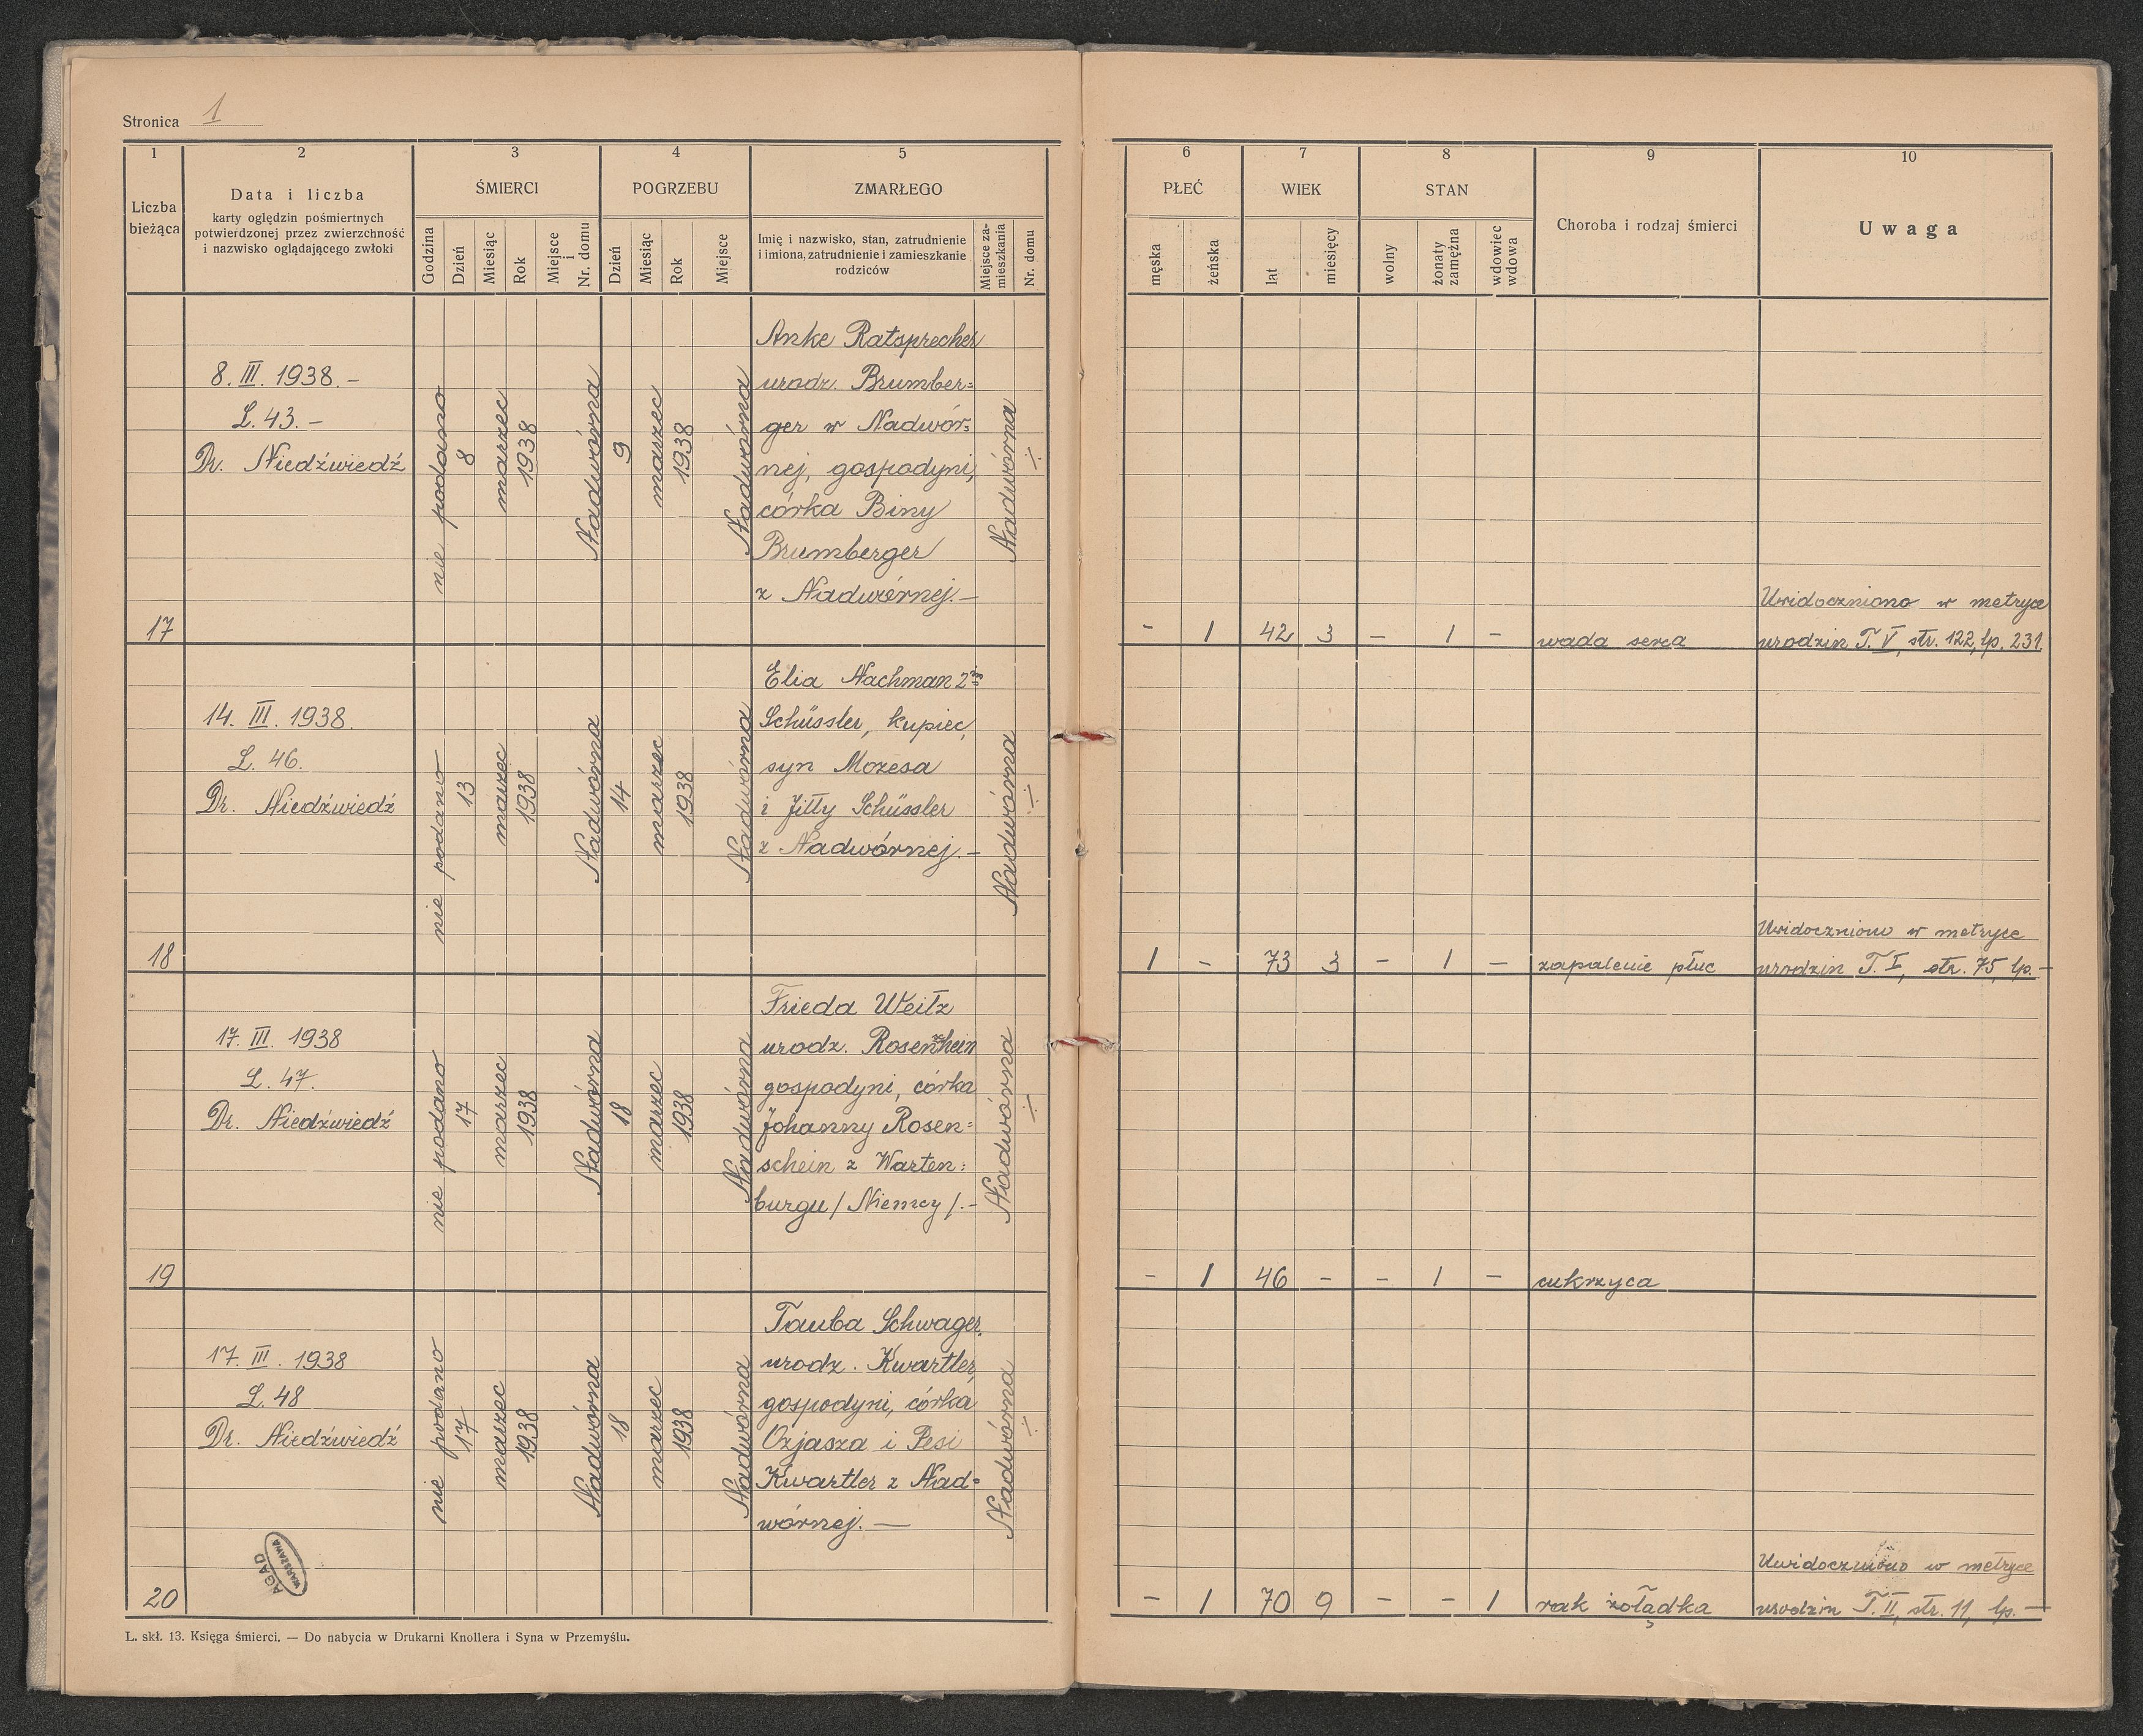 Stronica 1
1 2 3 4 5 6 7 8 9 10
Liczba bieżąca
Data i liczba
karty oględzin pośmiertnych
potwierdzonej przez zwierzchność
i nazwisko oglądającego zwłoki
ŚMIERCI
Godzina
Dzień
Miesiąc
Rok
Miejsce i Nr. domu
POGRZEBU
Dzień
Miesiąc
Rok
Miejsce
ZMARŁEGO
Imię i nazwisko, stan, zatrudnienie
i imiona, zatrudnienie i zamieszkanie
rodziców
Miejsce za-
mieszkania
Nr. domu
PŁEĆ
męska
żeńska
WIEK
lat
miesięcy
STAN
wolny
żonaty
zamężna
wdowiec
wdowa
Choroba i rodzaj śmierci
Uwaga
17
8. III. 1938.-
L. 43.-
Dr. Niedźwiedź
nie podano
8
marzec
1938
Nadwórna
9
marzec
1938
Nadwórna
Anke Ratsprecher
urodz. Brumber=
ger w Nadwór=
nej, gospodyni,
córka Biny
Brumberger
z Nadwórnej.—
Nadwórna
-/.
- 1 42 3 - 1 -
wada serca
Uwidoczniono w metryce
urodzin T. V, str. 122, lp. 231.
18
14. III. 1938.
L. 46.
Dr. Niedźwiedź
nie podano
13
marzec
1938
Nadwórna
14
marzec
1938
Nadwórna
Elia Nachman 2im
Schüssler, kupiec,
syn Mozesa
i Jitty Schüssler
z Nadwórnej.—
Nadwórna
-/.
1 - 73 3 - 1 -
zapalenie płuc
Uwidoczniono w metryce
urodzin T. I, str. 75, lp.—
19
17. III. 1938
L. 47.
Dr. Niedźwiedź
nie podano
17
marzec
1938
Nadwórna
18
marzec
1938
Nadwórna
Frieda Weitz
urodz.
gospodyni, córka
Johanny Rosen=
schein z Warten=
burgu / Niemcy /.-
Nadwórna
-/.
- 1 46 - - 1 -
cukrzyca
20
17. III. 1938
L. 48
Dr. Niedźwiedź
nie podano
17
marzec
1938
Nadwórna
18
marzec
1938
Nadwórna
Tauba Schwager,
urodz. Kwartler,
gospodyni, córka
Ozjasza i Pesi
Kwartler z Nad=
wórnej.—
Nadwórna
-/.
- 1 70 9 - - 1
rak żołądka
Uwidoczniono w metryce
urodzin T. II, str. 11, lp.—
AGAD
WARSZAWA
L. skł. 13. Księga śmierci. — Do nabycia w Drukarni Knollera i Syna w Przemyślu.